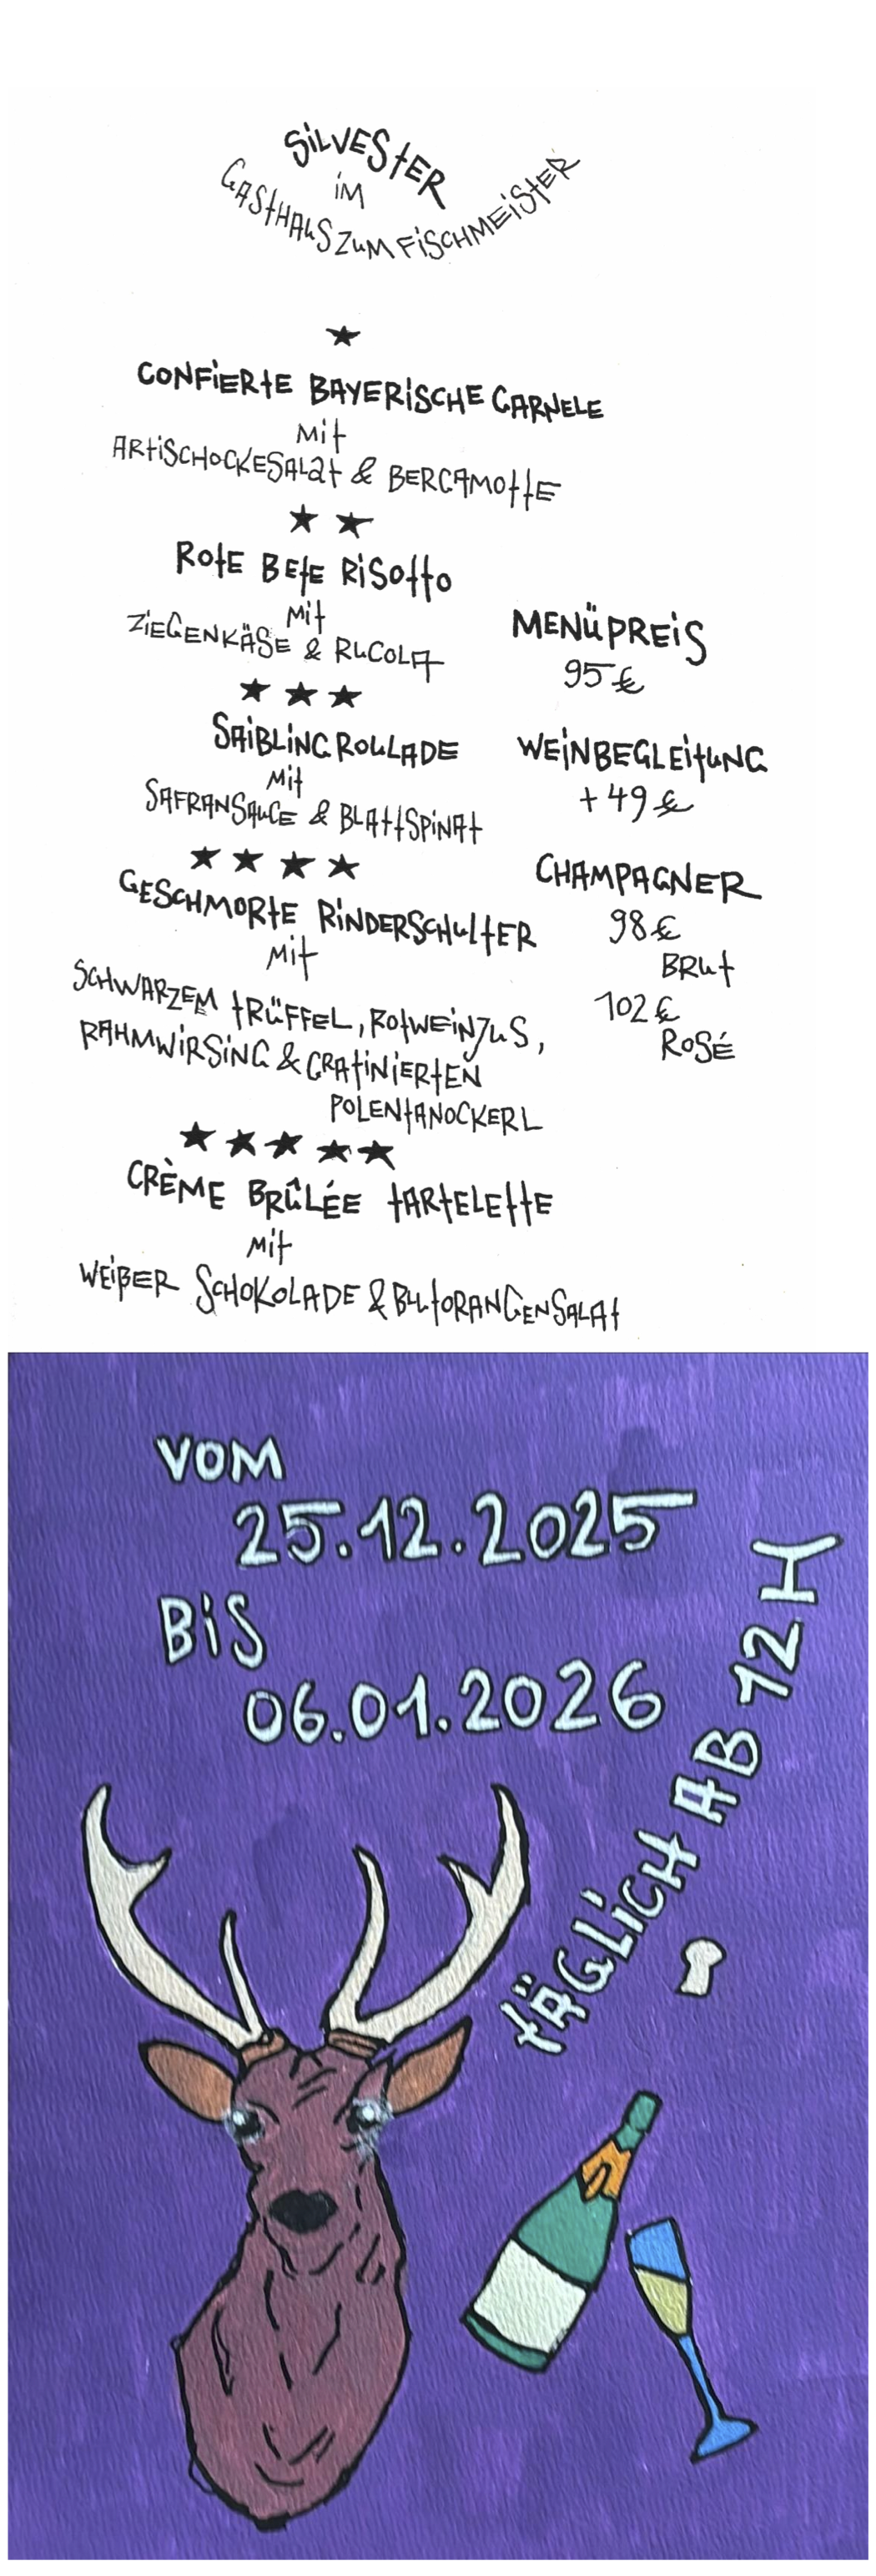 SILVESTER
IM
GASTHAUS ZUM FISCHMEISTER
CONFIERTE BAYERISCHE GARNELE
MIT
ARTISCHOCKESALAT & BERGAMOTTE
ROTE BETE RISOTTO
MIT
ZIEGENKÄSE & RUCOLA
SAIBLINGROULLADE
MIT
SAFRANSAUCE & BLATTSPINAT
GESCHMORTE RINDERSCHULTER
MIT
SCHWARZEM TRÜFFEL, ROTWEINJUS,
RAHMWIRSING & GRATINIERTEN
POLENTANOCKERL
CRÈME BRÛLÉE TARTELETTE
MIT
WEIßER SCHOKOLADE & BLUTORANGENSALAT
MENÜPREIS
95 €
WEINBEGLEITUNG
+ 49 €
CHAMPAGNER
98 €
BRUT
102 €
ROSÉ
VOM
25.12.2025
BIS
06.01.2026
TÄGLICH AB 12 H